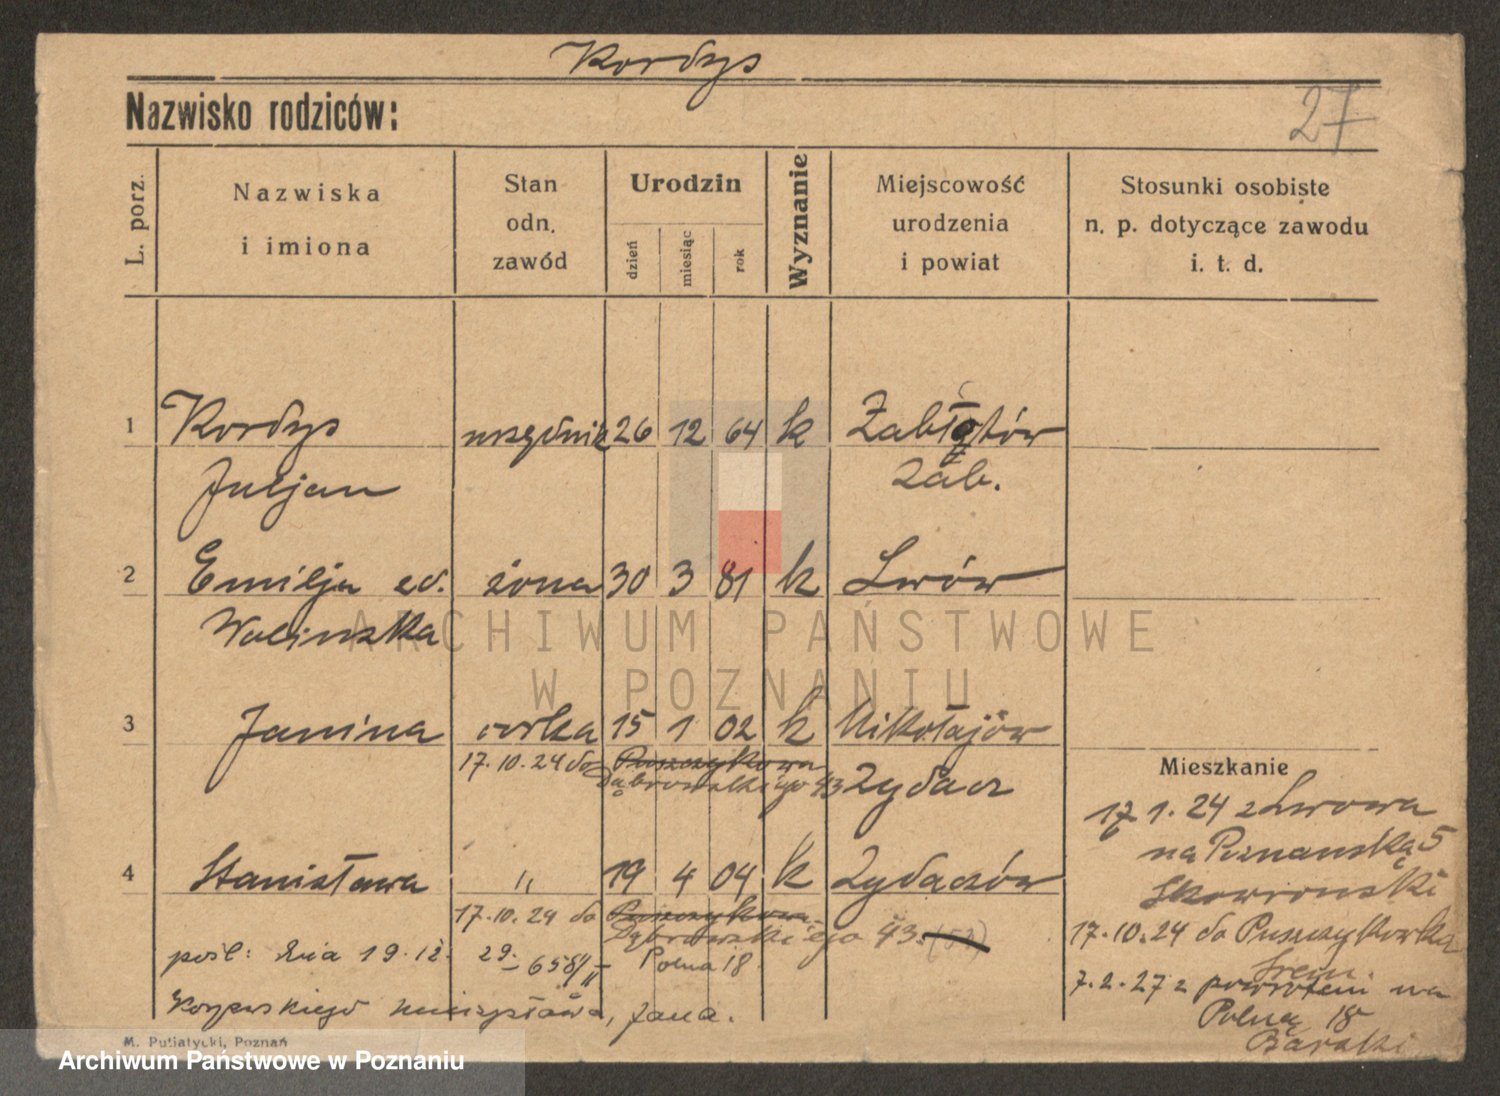 Kordys
27
Nazwisko rodziców:
L. porz.
Nazwiska
i imiona
Stan
odn.
zawód
Urodzin
dzień
miesiąc
rok
Wyznanie
Miejscowość
urodzenia
i powiat
Stosunki osobiste
n. p. dotyczące zawodu
i. t. d.
1 Kordys urzędnik 26 12 64 k Zabłotów
Juljan Zab.
2 Emilja żona 30 3 81 k Lwów
Wolinska
3 Janina córka 15 1 02 k Mikołajów
17.10.24 do Puszczykowa
Dąbrowskiego 43 Zydacz
4 Stanisława " 19 4 04 k Zydaczów
17.10.24 do Puszczykowa
Dąbrowskiego 43. (53)
pośl: dnia 19.12. 29. 658/II Polna 18
Mieczysława, Jana.
Mieszkanie
17 1. 24 z Lwowa
na Poznanską 5
Skowronski
17.10.24 do Puszczykowka
Śrem.
7.2.27 z powrotem na
Polną 18
Baraki
M. Putiatycki, Poznań
ARCHIWUM PAŃSTWOWE
W POZNANIU
Archiwum Państwowe w Poznaniu